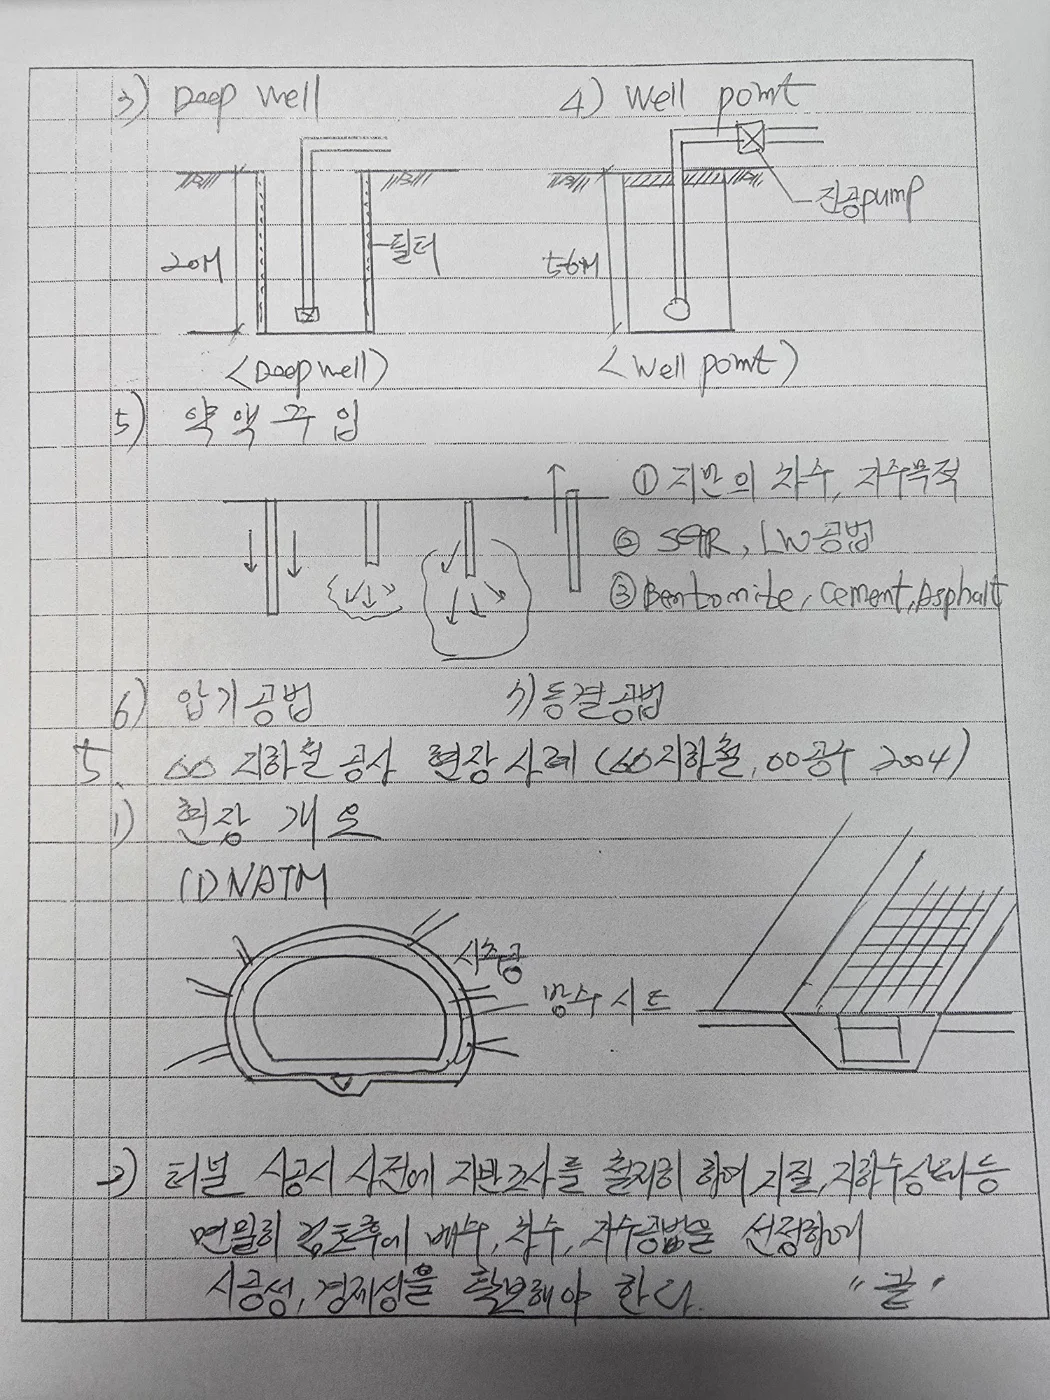 3) Deep Well
4) Well point
진공pump
20M
필터
5~6M
<Deep well>
<Well point>
5) 약액주입
① 지반의 차수, 지수목적
② SGR, LW공법
③ Bentonite, Cement, Asphalt
6) 압기공법
7) 동결공법
5. 00 지하철 공사 현장 사례 (00지하철, 00공구 2004)
1) 현장 개요
(1) NATM
방수시트
2) 터널 시공시 사전에 지반조사를 철저히 하여 지질, 지하수상태등
면밀히 검토후에 배수, 차수, 지수공법을 선정하여
시공성, 경제성을 확보해야 한다. "끝"